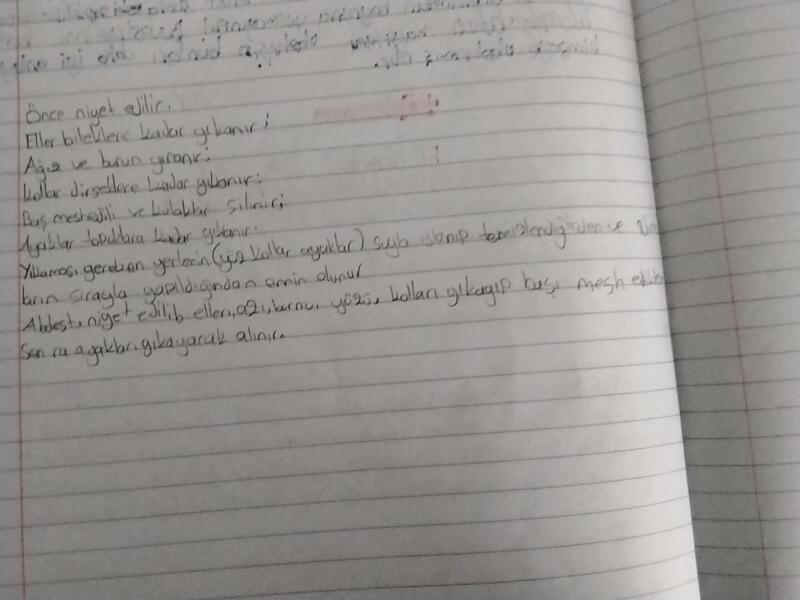 Önce niyet edilir.
Eller bileklere kadar yıkanır;
Ağız ve burun yıkanır;
kollar dirseklere kadar yıkanır;
Baş meshedili ve kulaklar silinir;
Ayaklar topuklara kadar yıkanır.
Yıkaması gereken yerlerin (yüz kollar ayaklar) suyla ıslanıp temizlendiğinden ve
ların sırayla yapıldığından emin olunur
Abdest, niyet edilib elleri, azı, burnu, yüzü, kolları yıkayıp başı mesh
Sonra ayakları yıkayacak alınır.